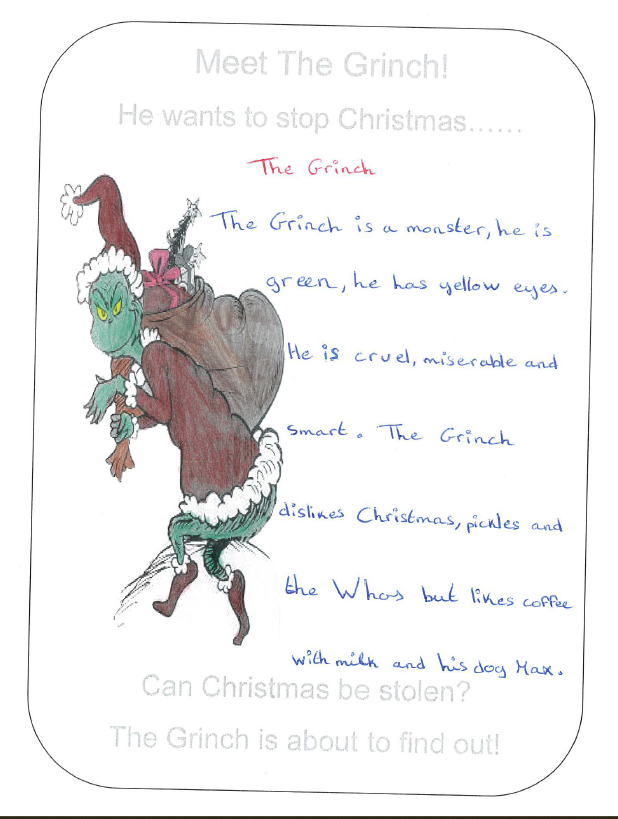 Meet The Grinch!
He wants to stop Christmas......
The Grinch
The Grinch is a monster, he is
green, he has yellow eyes.
He is cruel, miserable and
smart. The Grinch
dislikes Christmas, pickles and
the Whos but likes coffee
with milk and his dog Max.
Can Christmas be stolen?
The Grinch is about to find out!